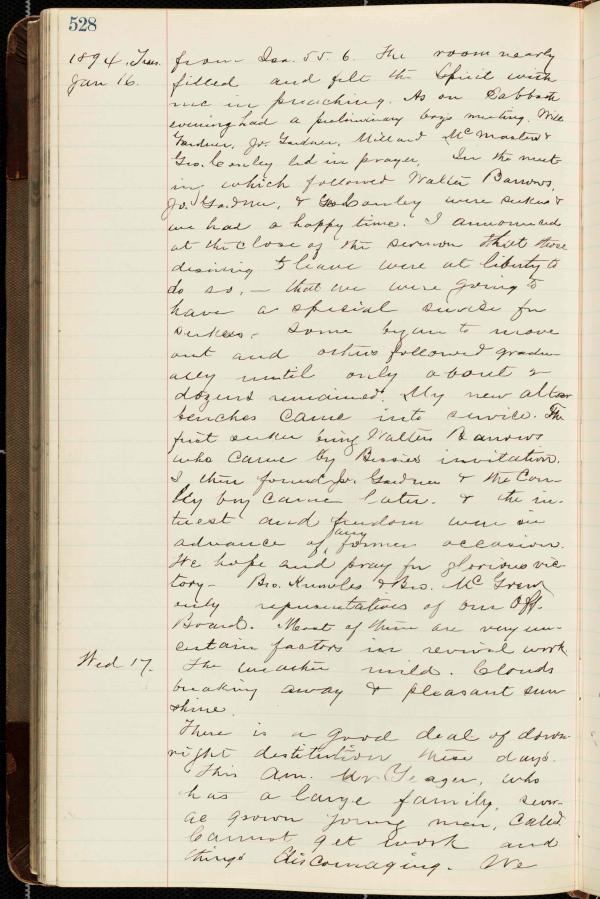 528
1894, Tues. from Isa. 55.6. The room nearly
Jan 16. filled and felt the Spirit with
me in preaching. As on Sabbath
evening had a preliminary boys meeting. Will
Gardner, Jo. Gardner, Millard McMasters &
Geo. Conley led in prayer. In the meet-
in which followed Walter Barrows,
Jo. Gardner, & Geo Conley were seekers &
we had a happy time. I announced
at the close of the sermon that those
desiring to leave were at liberty to
do so, – that we were going to
have a special service for
seekers. Some began to move
out and others followed gradu-
ally until only about 2
dozens remained. My new altar
benches came into service. The
first seeker being Walter Barrows
who came by Bessie's invitation.
I then found Jo. Gardner & the Con-
ley boy came later. & the in-
terest and freedom were in
advance of any former occasion.
We hope and pray for glorious vic-
tory – Bro. Knowles & Bro. McGrew
only representatives of our Off.
Board. Most of them are very un-
certain factors in revival work.
Wed 17. The weather mild. Clouds
breaking away & pleasant sun
shine.
There is a good deal of down-
right destitution these days.
This Am. Mr Yeager, who
has a large family, sever-
al grown young men, called.
Cannot get work and
things discouraging. We